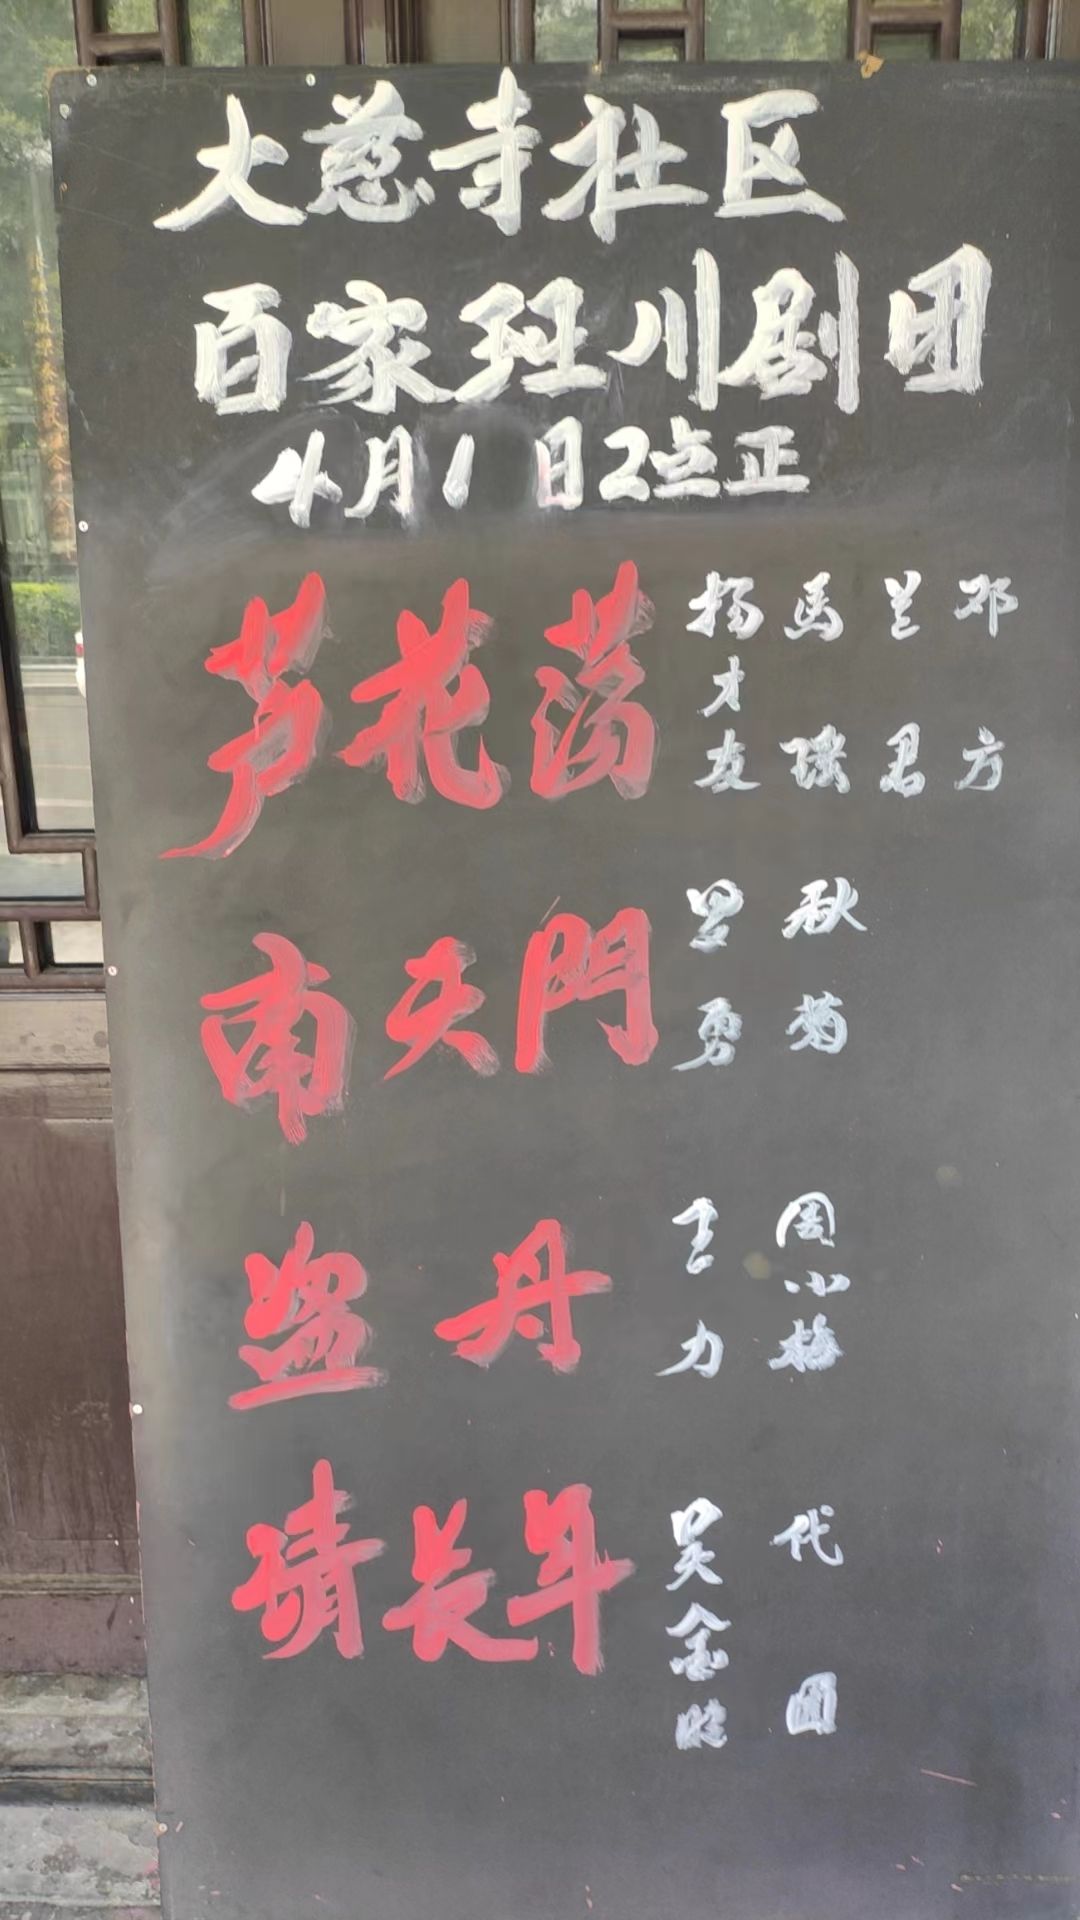 大慈寺社区
百家班川剧团
4月1日2点正
芦花荡
杨才友
马瑶
兰君
邓方
南天門
罗勇
秋菊
盗丹
王力
周小梅
请长年
吴金
代圆